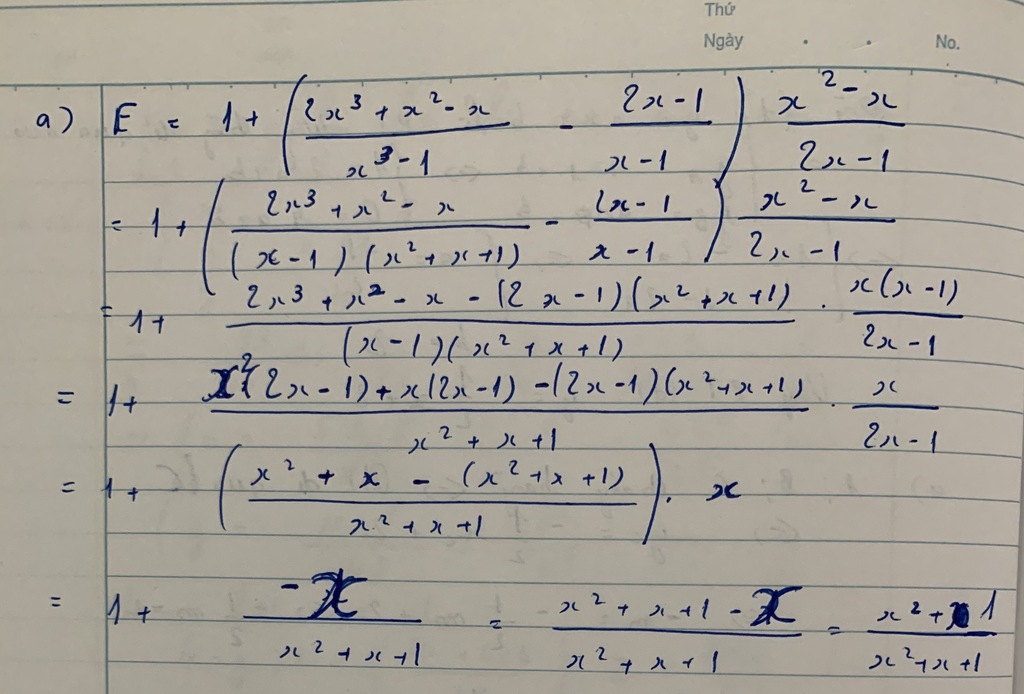 Thứ
Ngày . . No.
a) E = 1 + ( (2x³ + x² - x)/(x³ - 1) - (2x - 1)/(x - 1) ) (x² - x)/(2x - 1)
= 1 + ( (2x³ + x² - x)/((x - 1)(x² + x + 1)) - (2x - 1)/(x - 1) ) (x² - x)/(2x - 1)
= 1 + (2x³ + x² - x - (2x - 1)(x² + x + 1))/((x - 1)(x² + x + 1)) . (x(x - 1))/(2x - 1)
= 1 + (x²(2x - 1) + x(2x - 1) - (2x - 1)(x² + x + 1))/(x² + x + 1) . x/(2x - 1)
= 1 + ( (x² + x - (x² + x + 1))/(x² + x + 1) ) . x
= 1 + (-x)/(x² + x + 1) = (x² + x + 1 - x)/(x² + x + 1) = (x² + 1)/(x² + x + 1)